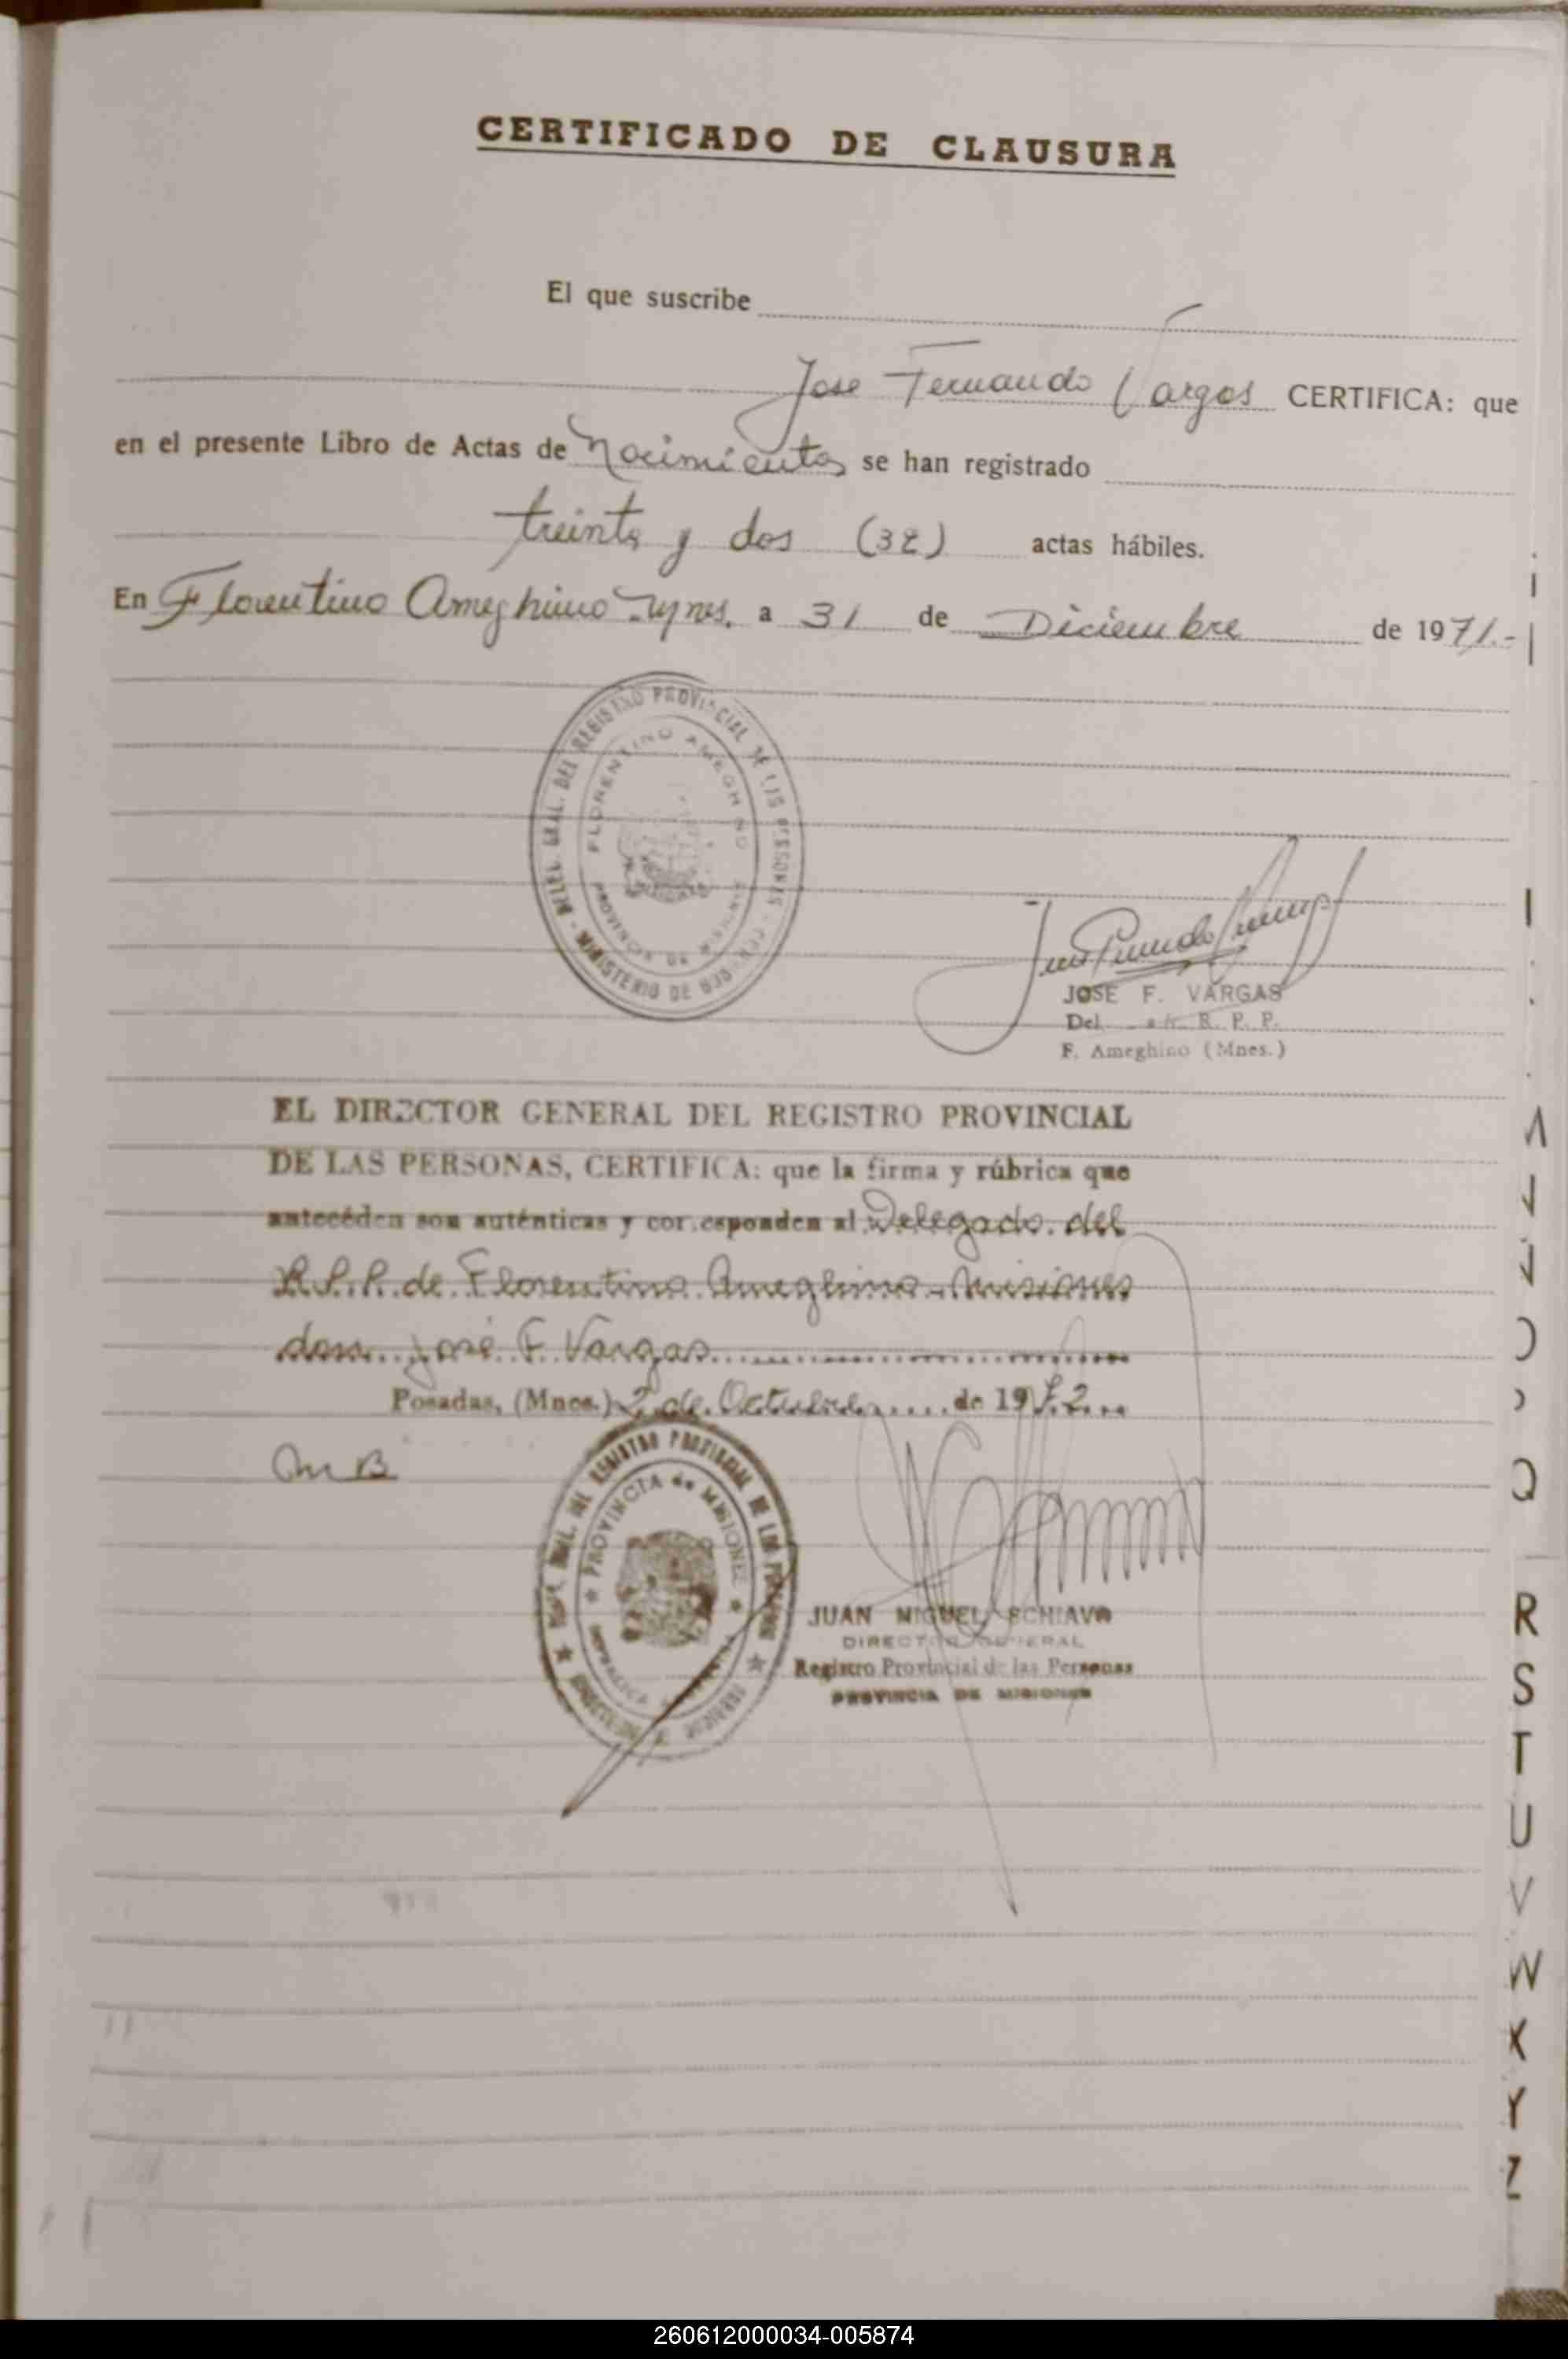 CERTIFICADO DE CLAUSURA
El que suscribe
Jose Fernando Vargas CERTIFICA: que
en el presente Libro de Actas de Nacimientos se han registrado
treinta y dos (32) actas hábiles.
En Florentino Ameghino a 31 de Diciembre de 1971.-
DEL REGISTRO PROVINCIAL DE LAS PERSONAS
FLORENTINO AMEGHINO
PROVINCIA DE MISIONES
MINISTERIO DE
JOSE F. VARGAS
Del. R. P. P.
F. Ameghino (Mnes.)
EL DIRECTOR GENERAL DEL REGISTRO PROVINCIAL
DE LAS PERSONAS, CERTIFICA: que la firma y rúbrica que
anteceden son auténticas y corresponden al Delegado del
R.P.P. de Florentino Ameghino - Misiones
don José F. Vargas
Posadas, (Mnes.) 2 de Octubre de 1972
REGISTRO PROVINCIAL DE LAS
PROVINCIA de MISIONES
JUAN MIGUEL SCHIAVO
DIRECTOR GENERAL
Registro Provincial de las Personas
PROVINCIA DE MISIONES
Q
R
S
T
U
V
W
X
Y
Z
260612000034-005874